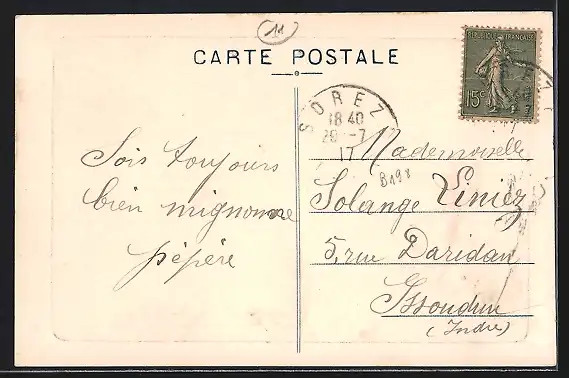 11
CARTE POSTALE
REPUBLIQUE FRANÇAISE
15c
SOREZ
18 40
29 -7
17
Sois toujours
bien mignonne
pépère
Mademoiselle
B198
Solange Liniez
5, rue Daridan
Issoudun
(Indre)